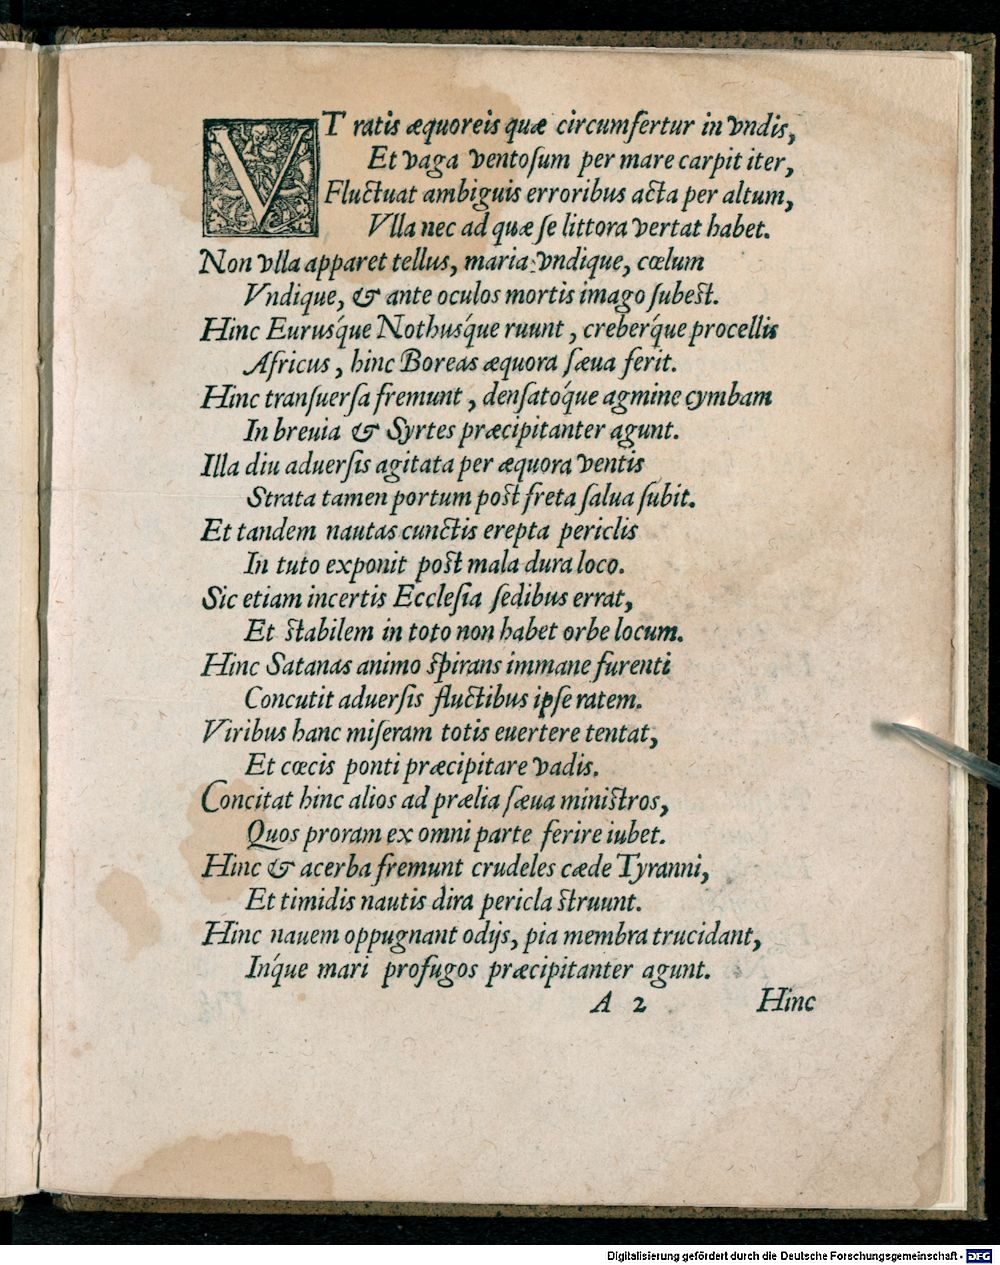 VT ratis æquoreis quæ circumfertur in vndis,
Et vaga ventoſum per mare carpit iter,
Fluctuat ambiguis erroribus acta per altum,
Vlla nec ad quæ ſe littora vertat habet.
Non vlla apparet tellus, maria vndique, cœlum
Vndique, & ante oculos mortis imago ſubest.
Hinc Eurusq́ue Nothusq́ue ruunt, creberq́ue procellis
Africus, hinc Boreas æquora ſæua ferit.
Hinc tranſuerſa fremunt, denſatoq́ue agmine cymbam
In breuia & Syrtes præcipitanter agunt.
Illa diu aduerſis agitata per æquora ventis
Strata tamen portum post freta ſalua ſubit.
Et tandem nautas cunctis erepta periclis
In tuto exponit post mala dura loco.
Sic etiam incertis Eccleſia ſedibus errat,
Et stabilem in toto non habet orbe locum.
Hinc Satanas animo spirans immane furenti
Concutit aduerſis fluctibus ipſe ratem.
Viribus hanc miſeram totis euertere tentat,
Et cœcis ponti præcipitare vadis.
Concitat hinc alios ad prælia ſæua ministros,
Quos proram ex omni parte ferire iubet.
Hinc & acerba fremunt crudeles cæde Tyranni,
Et timidis nautis dira pericla struunt.
Hinc nauem oppugnant odijs, pia membra trucidant,
Inq́ue mari profugos præcipitanter agunt.
A 2 Hinc
Digitalisierung gefördert durch die Deutsche Forschungsgemeinschaft - DFG